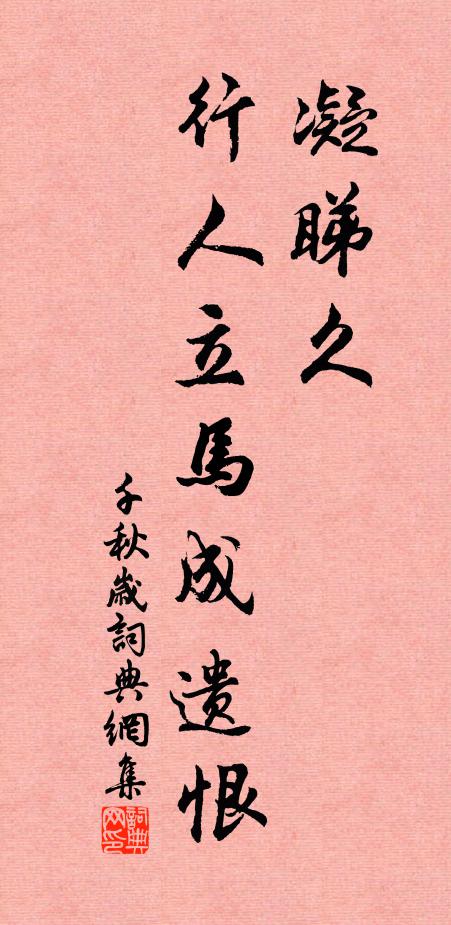 凝睇久
行人立馬成遗恨
千秋歲詞典網集
詞典网印